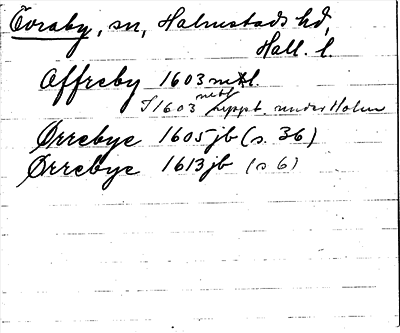 Övraby, sn, Halmstads hd,
Hall. l.
Offreby 1603 mtl.
I 1603 mtl uppt. under Holm
Ørrebye 1605 jb (s. 36)
Ørrebye 1613 jb (s 6)